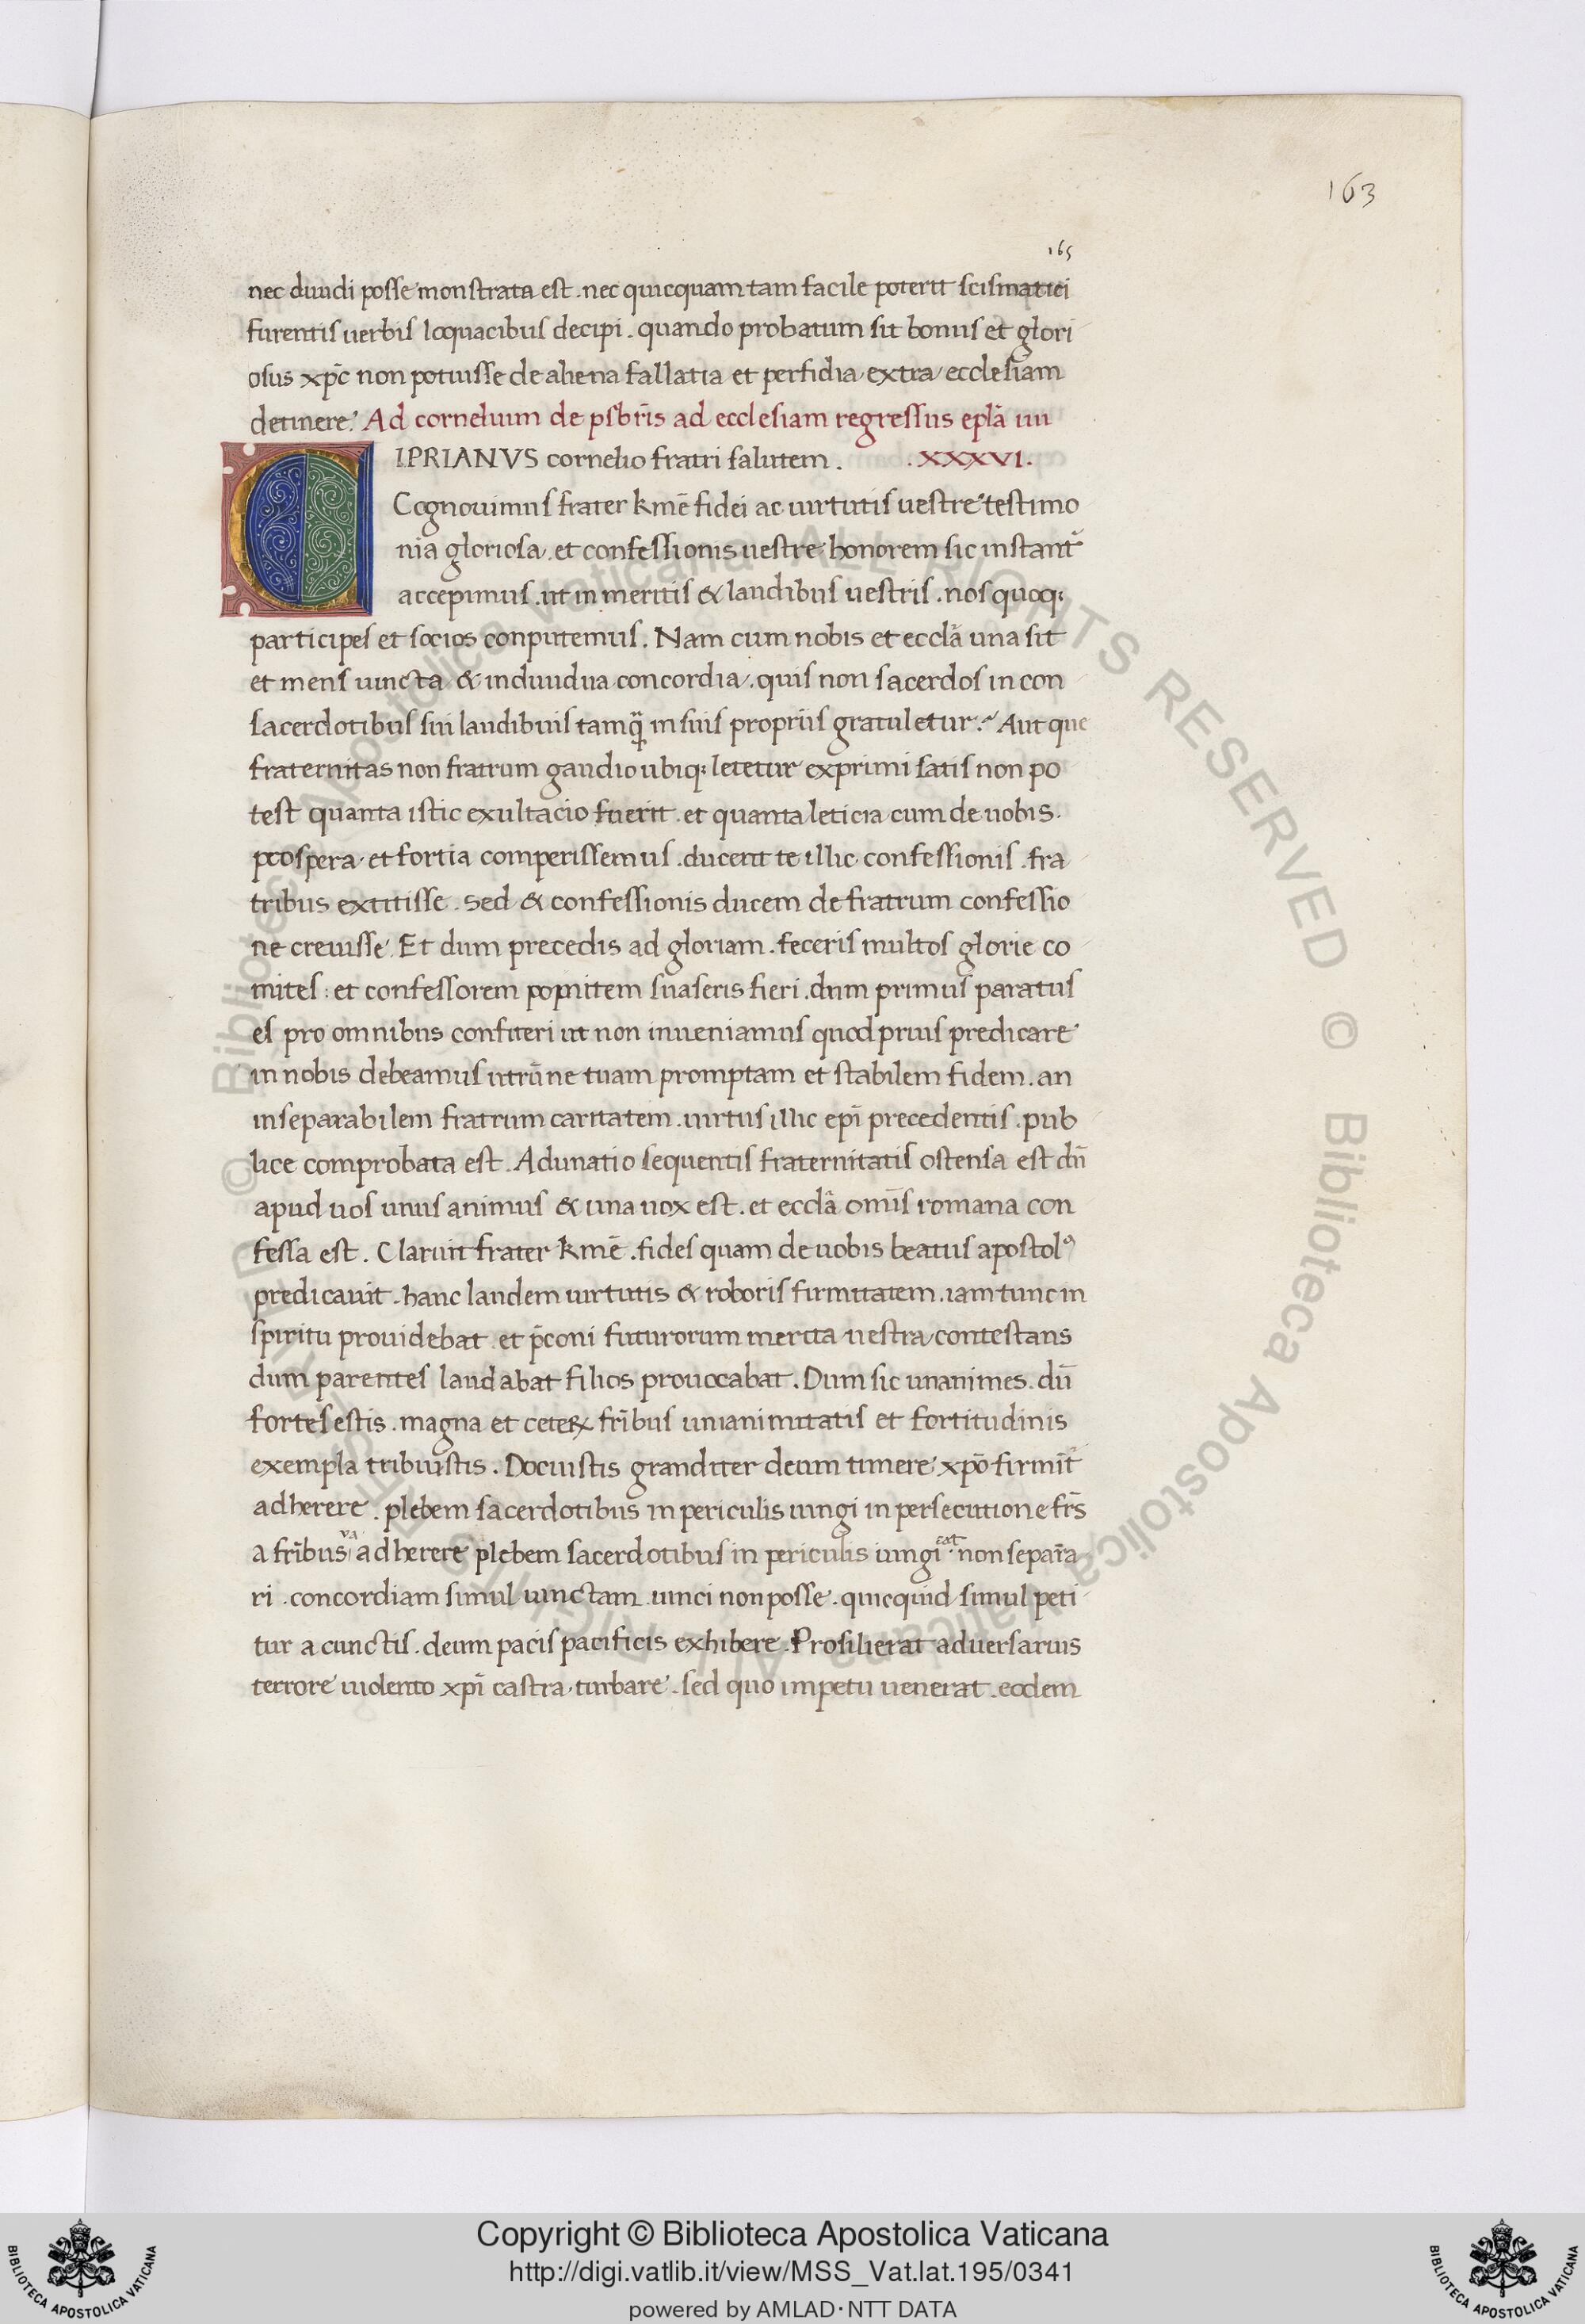 163
165
nec diuidi posse monstrata est . nec quicquam tam facile poterit scismatici
furentis uerbis loquacibus decipi . quando probatum sit bonus et glori
osus xp̄c non potuisse de aliena fallatia et perfidia extra ecclesiam
detinere . Ad cornelium de psbr̄is ad ecclesiam regressus eplā iiii
CIPRIANVS cornelio fratri salutem . . XXXVI .
Cognouimus frater kmē fidei ac uirtutis uestre testimo
nia gloriosa . et confessionis uestre honorem sic instant̄
accepimus . ut in meritis & laudibus uestris . nos quoq;
participes et socios conputemus . Nam cum nobis et ecclā una sit
et mens uincta & indiuidua concordia . quis non sacerdos in con
sacerdotibus sui laudibuis tamq̄ in suis propriis gratuletur ? Aut que
fraternitas non fratrum gaudio ubiq; letetur exprimi satis non po
test quanta istic exultacio fuerit . et quanta leticia cum de uobis .
prospera et fortia comperissemus . ducent te illic confessionis . fra
tribus extitisse . sed & confessionis ducem de fratrum confessio
ne creuisse . Et dum precedis ad gloriam . feceris multos glorie co
mites : et confessorem popnitem suaseris fieri . dum primus paratus
es pro omnibus confiteri ut non inueniamus quod prius predicare
in nobis debeamus utrūne tuam promptam et stabilem fidem . an
inseparabilem fratrum caritatem . uirtus illic ep̄i precedentis . pub
lice comprobata est . Adunatio sequentis fraternitatis ostensa est dn̄
apud uos unus animus & una uox est . et ecclā omīs romana con
fessa est . Claruit frater kmē . fides quam de uobis beatus apostolꝰ
predicauit . hanc laudem uirtutis & roboris firmitatem . iam tunc in
spiritu prouidebat . et p̄coni futurorum merita uestra contestans
dum parentes laudabat filios prouocabat . Dum sic unanimes . dū
fortes estis . magna et ceteꝝ fr̄ibus unianimitatis et fortitudinis
exempla tribuistis . Docuistis granditer deum timere xp̄o firmit̄
adherere . plebem sacerdotibus in periculis iungi in persecutione fr̄s
a fr̄ibus va adherere plebem sacerdotibus in periculis iungi cat non separ̄a
ri . concordiam simul uinctam . uinci non posse . quicquid simul peti
tur a cunctis . deum pacis pacificis exhibere . Prosilierat aduersarius
terrore uiolento xp̄i castra turbare . sed quo impetu uenerat . eodem
© Biblioteca Apostolica Vaticana ALL RIGHTS RESERVED
© Biblioteca Apostolica Vaticana ALL RIGHTS RESERVED
Copyright © Biblioteca Apostolica Vaticana
http://digi.vatlib.it/view/MSS_Vat.lat.195/0341
powered by AMLAD·NTT DATA
BIBLIOTECA APOSTOLICA VATICANA
BIBLIOTECA APOSTOLICA VATICANA